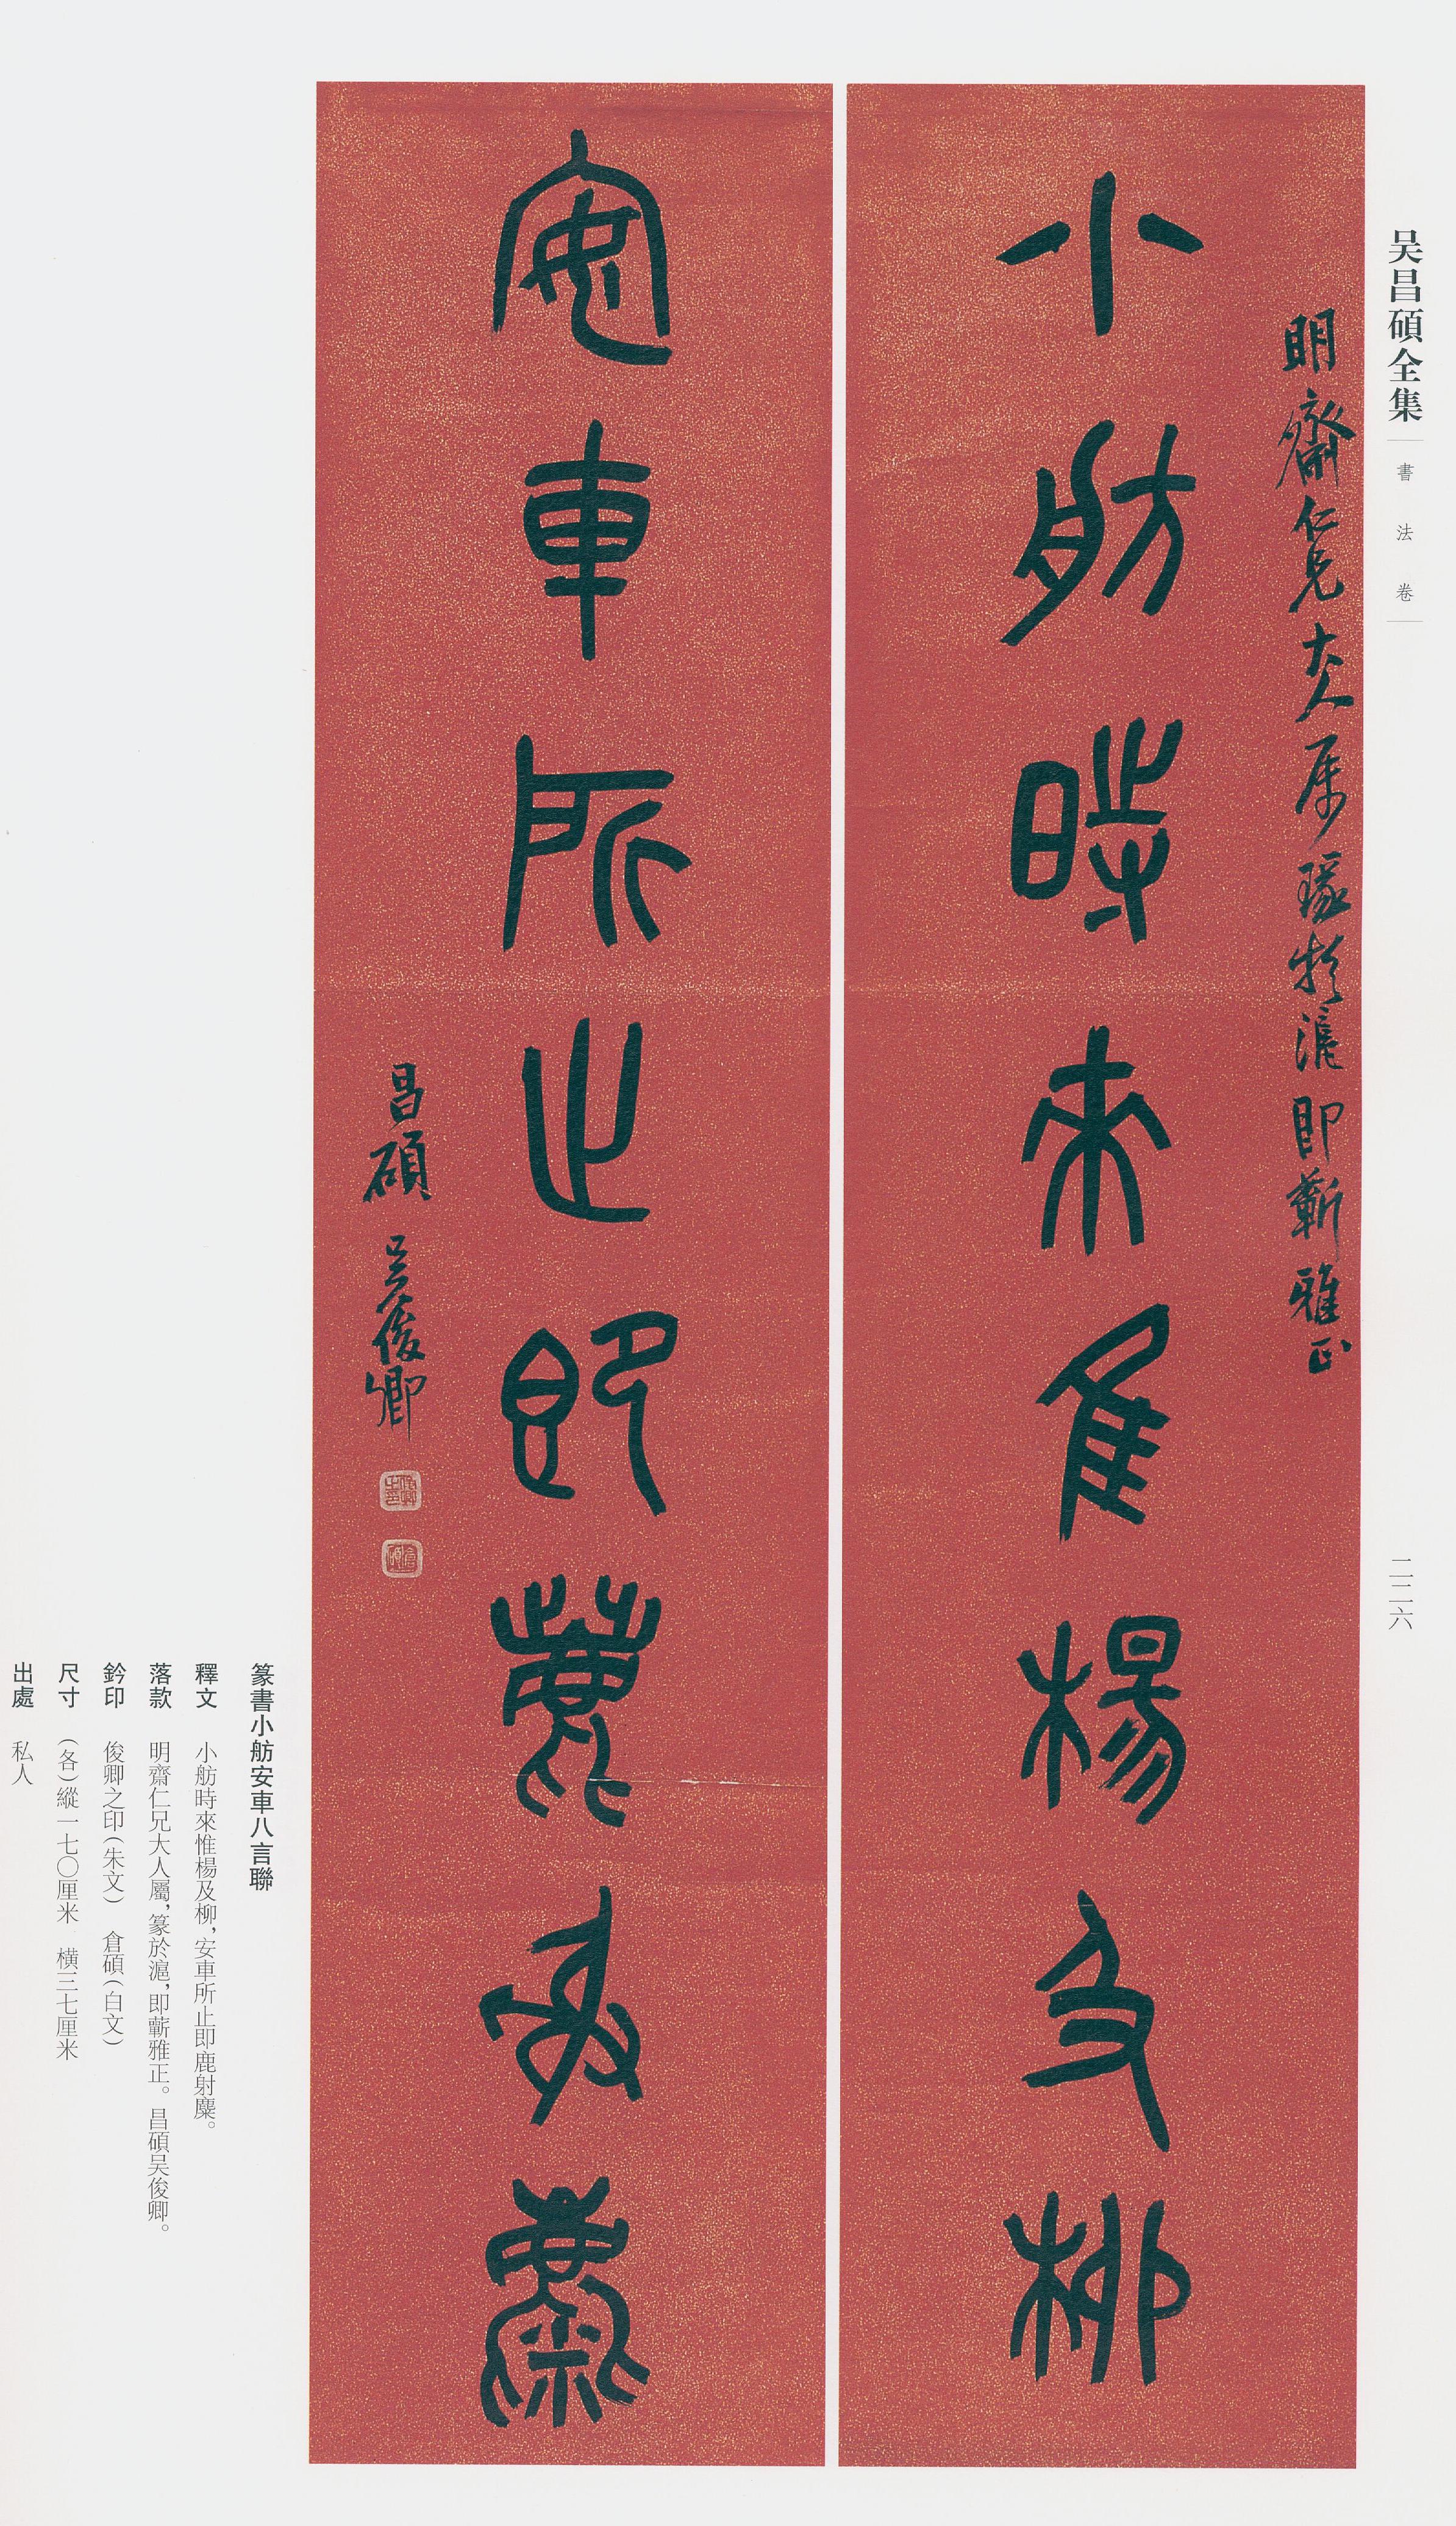 吴昌碩全集
書法卷
二二六
明齋仁兄大人属
瑑於滬即蘄雅正
小舫時來隹楊及柳
安車所止即鹿射麋
昌碩吴俊卿
俊卿之印
倉碩
篆書小舫安車八言聯
釋文 小舫時來惟楊及柳，安車所止即鹿射麋。
落款 明齋仁兄大人屬，篆於滬，即蘄雅正。昌碩吴俊卿。
鈐印 俊卿之印（朱文） 倉碩（白文）
尺寸 （各）縱一七〇厘米 橫三七厘米
出處 私人